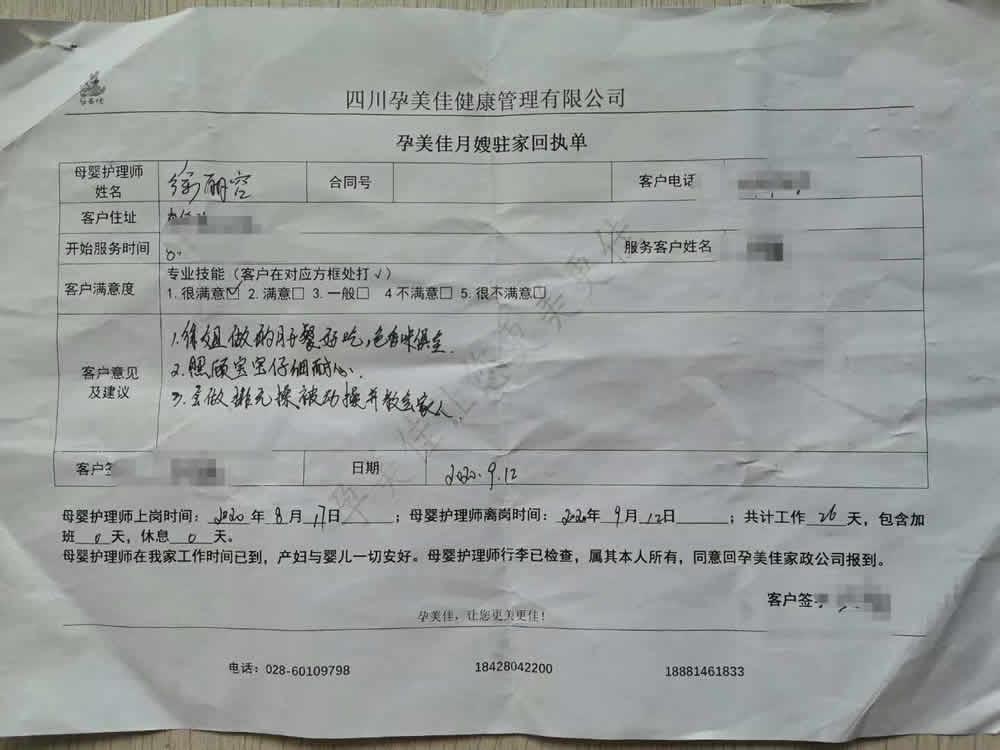 孕美佳
四川孕美佳健康管理有限公司
孕美佳月嫂驻家回执单
母婴护理师姓名 徐丽容 合同号 客户电话
客户住址
开始服务时间 服务客户姓名
客户满意度 专业技能（客户在对应方框处打√）
1. 很满意☑ 2. 满意□ 3. 一般□ 4 不满意□ 5. 很不满意□
客户意见及建议
1. 徐姐做的月子餐好吃，色香味俱全.
2. 照顾宝宝仔细耐心.
3. 会做排气操被动操并教会家人.
客户签 日期 2020.9.12
母婴护理师上岗时间：2020年8月17日；母婴护理师离岗时间：2020年9月12日；共计工作26天，包含加
班0天，休息0天。
母婴护理师在我家工作时间已到，产妇与婴儿一切安好。母婴护理师行李已检查，属其本人所有，同意回孕美佳家政公司报到。
客户签
孕美佳，让您更美更佳！
电话：028-60109798 18428042200 18881461833
孕美佳让您更美更佳